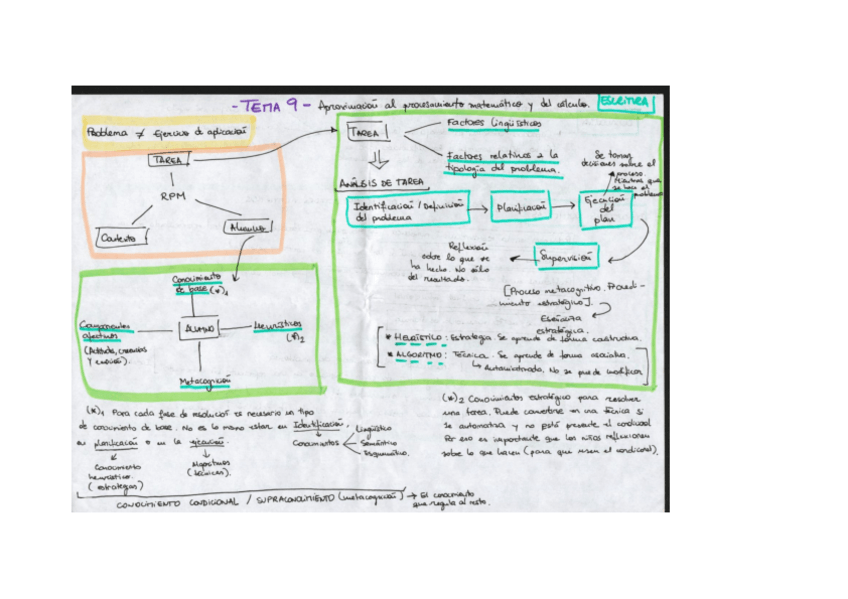 - TEMA 9 - Aproximación al procesamiento matemático y del cálculo. ESCRITURA
Problema ≠ Ejercicio de aplicación
TAREA
RPM
Contexto
Alumno
Conocimiento
de base (*)1
Componentes
afectivos
(Actitudes, creencias
y emoción).
ALUMNO
Heurísticos
(*)2
Metacognición
TAREA
Factores Lingüísticos
Factores relativos a la
tipología del problema.
ANÁLISIS DE TAREA
Identificación / Definición
del problema
Planificación
Ejecución
del
plan
Se toman
decisiones sobre el
proceso
mientras que
se hace el
problema
Supervisión
Reflexión
sobre lo que se
ha hecho. No sólo
del resultado.
[Proceso metacognitivo. Procedi-
miento estratégico].
Escritura
estratégica.
* HEURÍSTICO: Estrategia. Se aprende de forma constructiva.
* ALGORITMO: Técnica. Se aprende de forma asociativa.
Automatizado, No se puede modificar
(*)1 Para cada fase de resolución es necesario un tipo
de conocimiento de base. No es lo mismo estar en Identificación,
en planificación o en la ejecución.
Conocimientos
Lingüístico
Semántico
Esquemático.
Conocimiento
heurístico.
(estrategias)
Algoritmos
(técnicas).
CONOCIMIENTO CONDICIONAL / SUPRACONOCIMIENTO (metacognición) → El conocimiento
que regula al resto.
(*)2 Conocimiento estratégico para resolver
una tarea. Puede convertirse en una técnica si
se automatiza y no está presente el condicional
Por eso es importante que los niños reflexionen
sobre lo que hacen (para que usen el condicional).